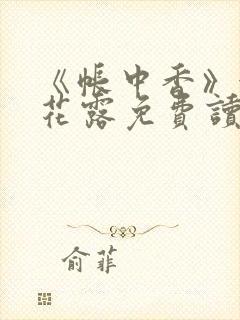 《帳中香》
花露免費讀
俞菲